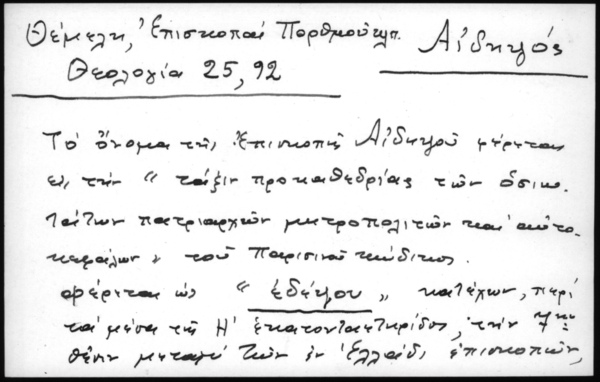 Θέμελη, Ἐπισκοπαί Πορθμοῦ κλπ. Αἰδηψός
Θεολογία 25, 92
Τό ὄνομα τῆς Ἐπισκοπῆς Αἰδηψοῦ φέρεται
εἰς τήν " τάξιν προκαθεδρίας τῶν ὁσιω-
τάτων πατριαρχῶν μητροπολιτῶν καί αὐτο-
κεφάλων " τοῦ Παρισινοῦ κώδικος.
φέρεται ὡς " ἐδέψου " κατέχων, περί
τά μέσα τῆς Η' ἑκατονταετηρίδος, τήν 7ην
θέσιν μεταξύ τῶν ἐν Ἑλλάδι ἐπισκοπῶν,